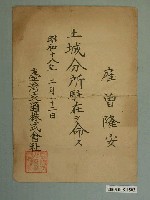 曾隆安
土城分所駐在ヲ命ス
昭和十八年 二月二十二日
臺灣交通株式會社